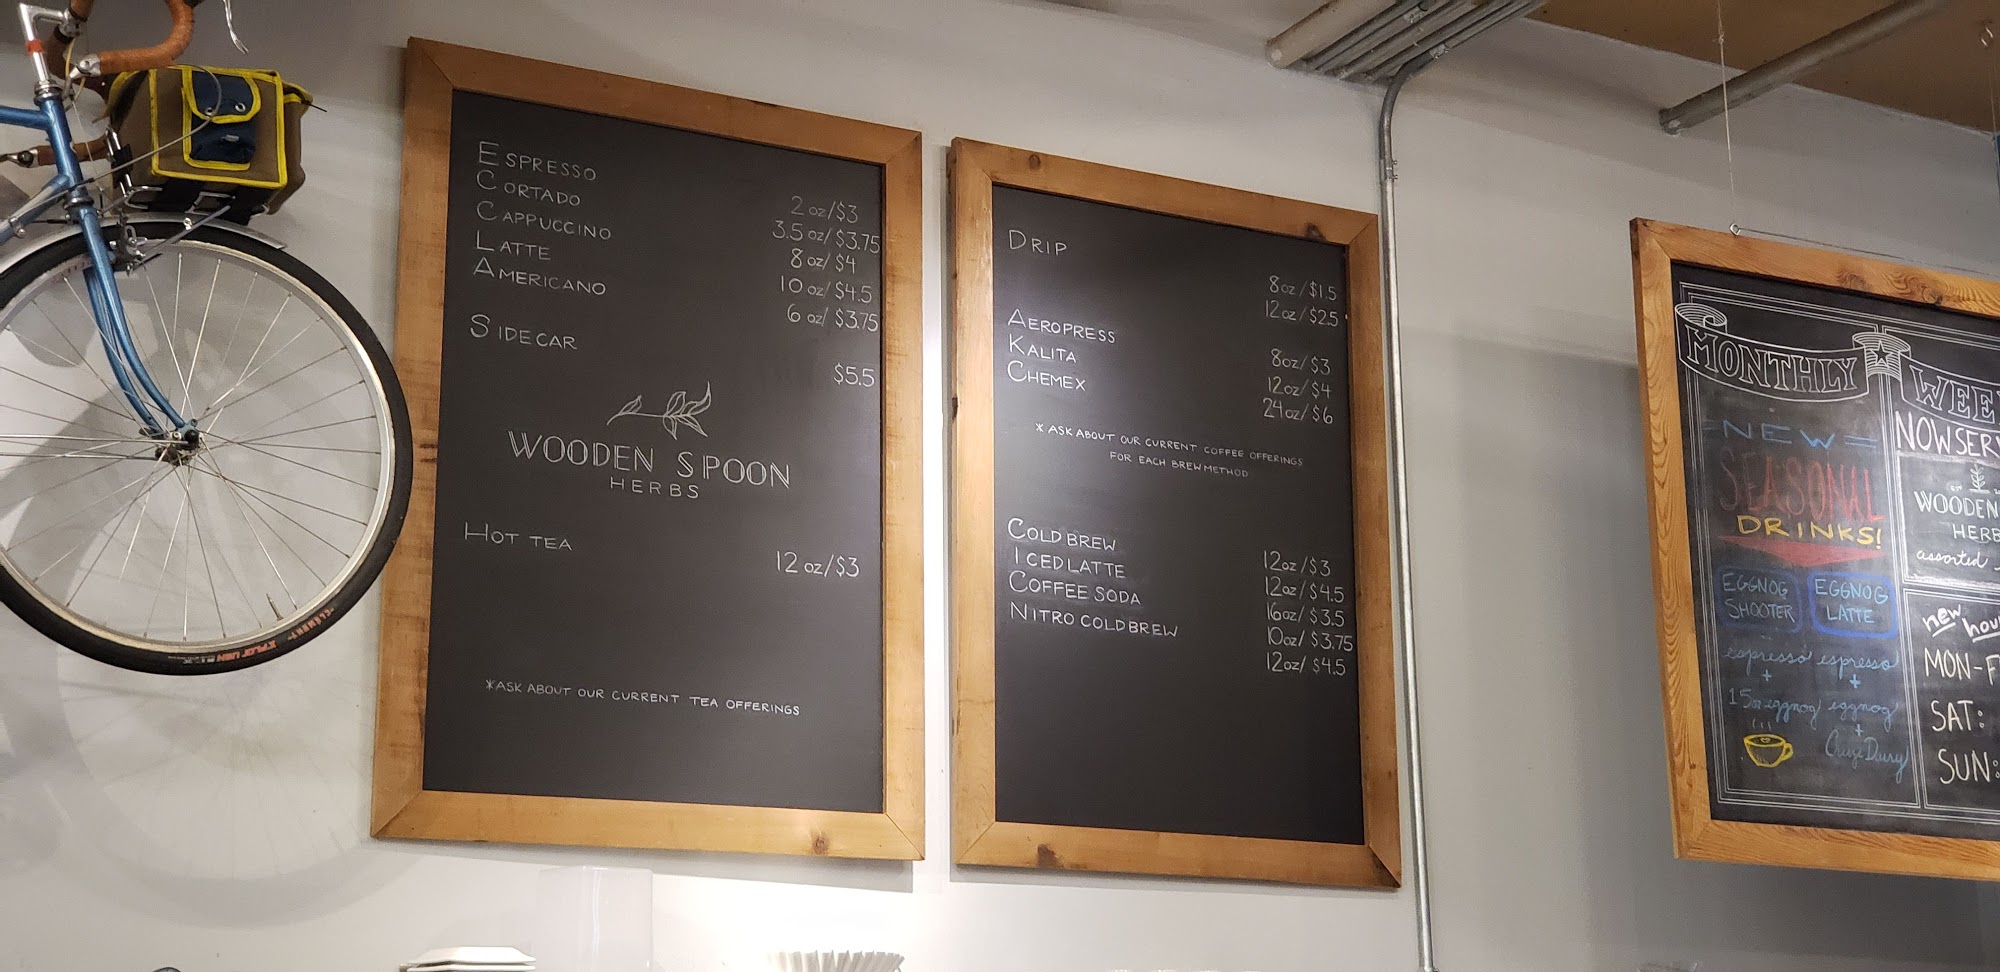 ESPRESSO 2 oz/$3
CORTADO 3.5 oz/$3.75
CAPPUCCINO 8 oz/$4
LATTE 10 oz/$4.5
AMERICANO 6 oz/$3.75
SIDECAR $5.5
WOODEN SPOON
HERBS
HOT TEA 12 oz/$3
*ASK ABOUT OUR CURRENT TEA OFFERINGS
DRIP 8oz/$1.5
12oz/$2.5
AEROPRESS 8oz/$3
KALITA 12oz/$4
CHEMEX 24oz/$6
* ASK ABOUT OUR CURRENT COFFEE OFFERINGS
FOR EACH BREW METHOD
COLD BREW 12oz/$3
ICED LATTE 12oz/$4.5
COFFEE SODA 16oz/$3.5
NITRO COLD BREW 10oz/$3.75
12oz/$4.5
MONTHLY
=NEW=
SEASONAL
DRINKS!
EGGNOG
SHOOTER
espresso
+
1.5oz eggnog
EGGNOG
LATTE
espresso
+
eggnog
+
WEE
NOW SER
WOODEN
HERB
assorted
new hou
MON-F
SAT:
SUN:
ELEMENT